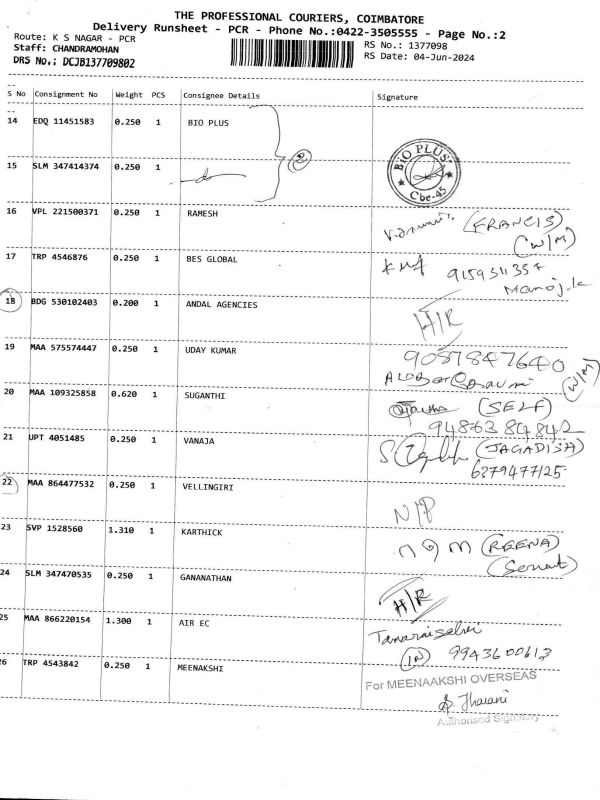 THE PROFESSIONAL COURIERS, COIMBATORE
Delivery Runsheet - PCR - Phone No.:0422-3505555 - Page No.:2
Route: K S NAGAR - PCR
RS No.: 1377098
Staff: CHANDRAMOHAN
RS Date: 04-Jun-2024
DRS No.; DCJB137709802
S No Consignment No Weight PCS Consignee Details Signature
14 EDQ 11451583 0.250 1 BIO PLUS
2
15 SLM 347414374 0.250 1 do
BIO PLUS
Cbe-45
16 VPL 221500371 0.250 1 RAMESH
(FRANCIS)
(W/M)
17 TRP 4546876 0.250 1 BES GLOBAL
Manoj.k
18 BDG 530102403 0.200 1 ANDAL AGENCIES
H/R
19 MAA 575574447 0.250 1 UDAY KUMAR
9087847640
(W/M)
20 MAA 109325858 0.620 1 SUGANTHI
(SELF)
9486384842
21 UPT 4051485 0.250 1 VANAJA
(JAGADISH)
6379477125
22 MAA 864477532 0.250 1 VELLINGIRI
N/P
23 SVP 1528560 1.310 1 KARTHICK
(REENA)
(Servent)
24 SLM 347470535 0.250 1 GANANATHAN
H/R
25 MAA 866220154 1.300 1 AIR EC
Tamaraiselvi
(IN) 9943600613
26 TRP 4543842 0.250 1 MEENAKSHI
For MEENAAKSHI OVERSEAS
Authorised Signatory